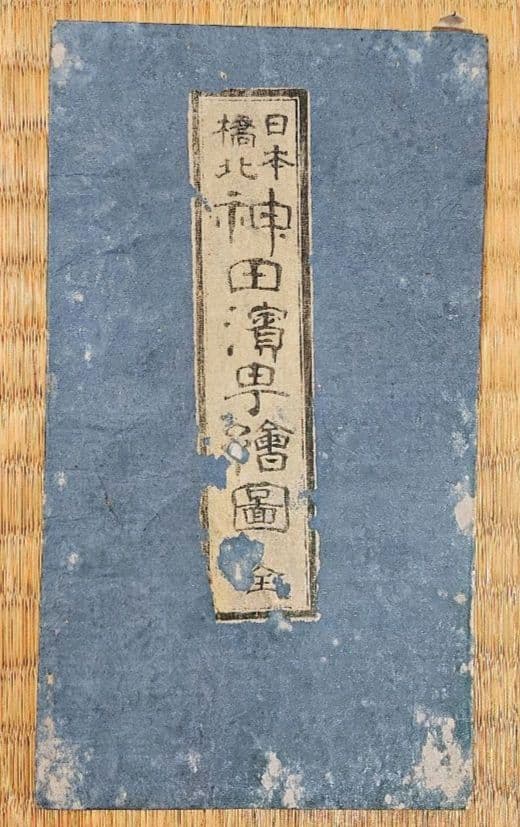 日本
橋北
神田濱甼繪圖 全